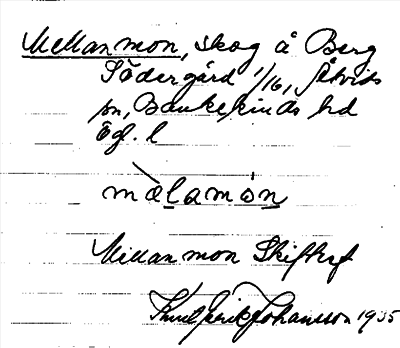 Mellanmon, skog å Berg
Södergård 1/16, Åtvids
sn, Bankekinds hd
Ögl. l
mèlamón
Mellanmon Skifteskf
Knut Erik Johansson 1935